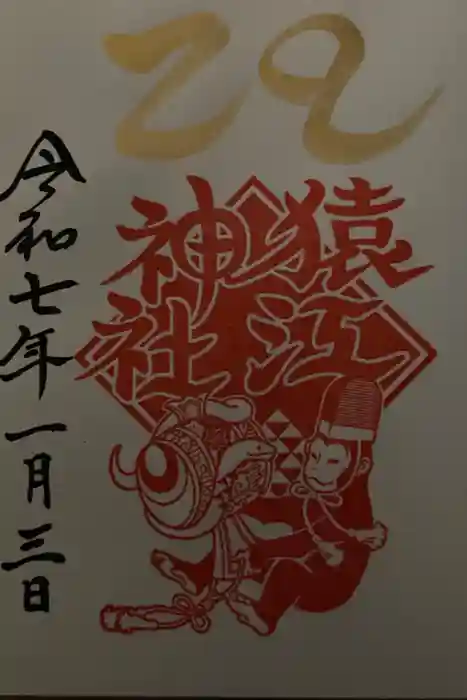 乙巳
猿江
神社
令和七年一月三日